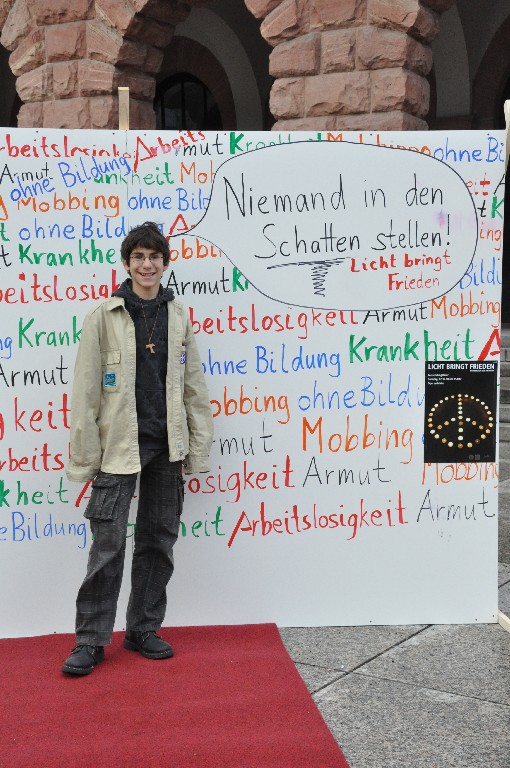 Arbeitslosigkeit Arbeitslosigkeit Armut Krankheit Mobbing ohne Bi
Armut ohne Bildung Krankheit Mobbing
Mobbing ohne Bildung
ohne Bildung
Niemand in den
Schatten stellen!
Licht bringt
Frieden
Krankheit Armut Kr
beitslosigkeit
Mobbing
Krankheit
beitslosigkeit Armut Mobbing
Krank ohne Bildung Krankheit A
Armut Mobbing ohne Bildung
LICHT BRINGT FRIEDEN
igkeit Armut Mobbing
Arbeits losigkeit Armut Mobbing
nkheit
ohne Bildung heit Arbeitslosigkeit Armut